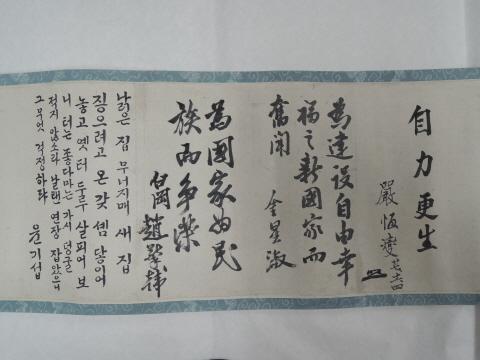 自力更生
嚴恆燮
為建設自由幸
福之新國家而
奮鬪
金星淑
為國家為民
族而爭榮
白岡 趙擎韓
낡은 집 무너지매 새 집
짓으려고 온갖 셈 닿이어
놓고 옛 터 두루 살피어 보
니 터는 좋다마는 가시 덩굴
적지 않소라 날랜 연장 잡았으니
그 무엇 걱정하랴
윤기섭